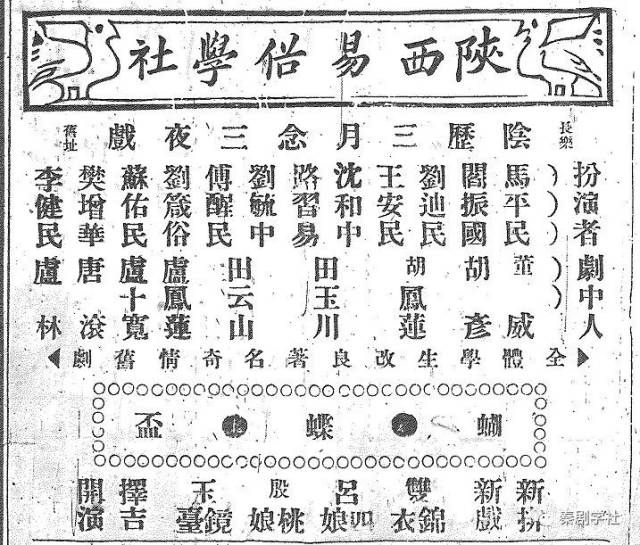 陝西易俗學社
長樂
陰歷三月念三夜戲
舊址
扮演者 劇中人
馬平民 董威
閻振國 胡彥
劉迪民 王安民 胡鳳蓮
沈和中 路習易 田玉川
劉毓中 傅醒民 田云山
劉箴俗 盧鳳蓮
蘇佑民 盧十寬
樊增華 唐滾
李健民 盧林
全體學生改良著名奇情舊劇
蝴蝶上盃
新排
新戲
雙錦衣
呂四娘
殷桃娘
玉鏡臺
擇吉
開演
秦剧学社